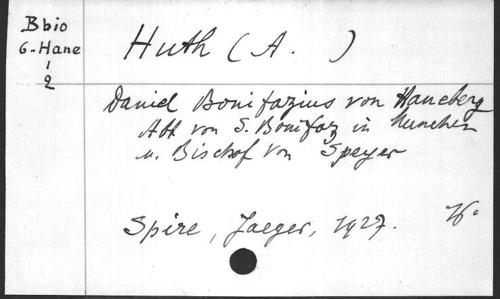 B bio
Huth (A. )
6-Hane
2
Daniel Bonifazius von Haneberg
Abt von S. Bonifaz in Munchen
u. Bischof von Speyer
Spire, Jaeger, 1927.